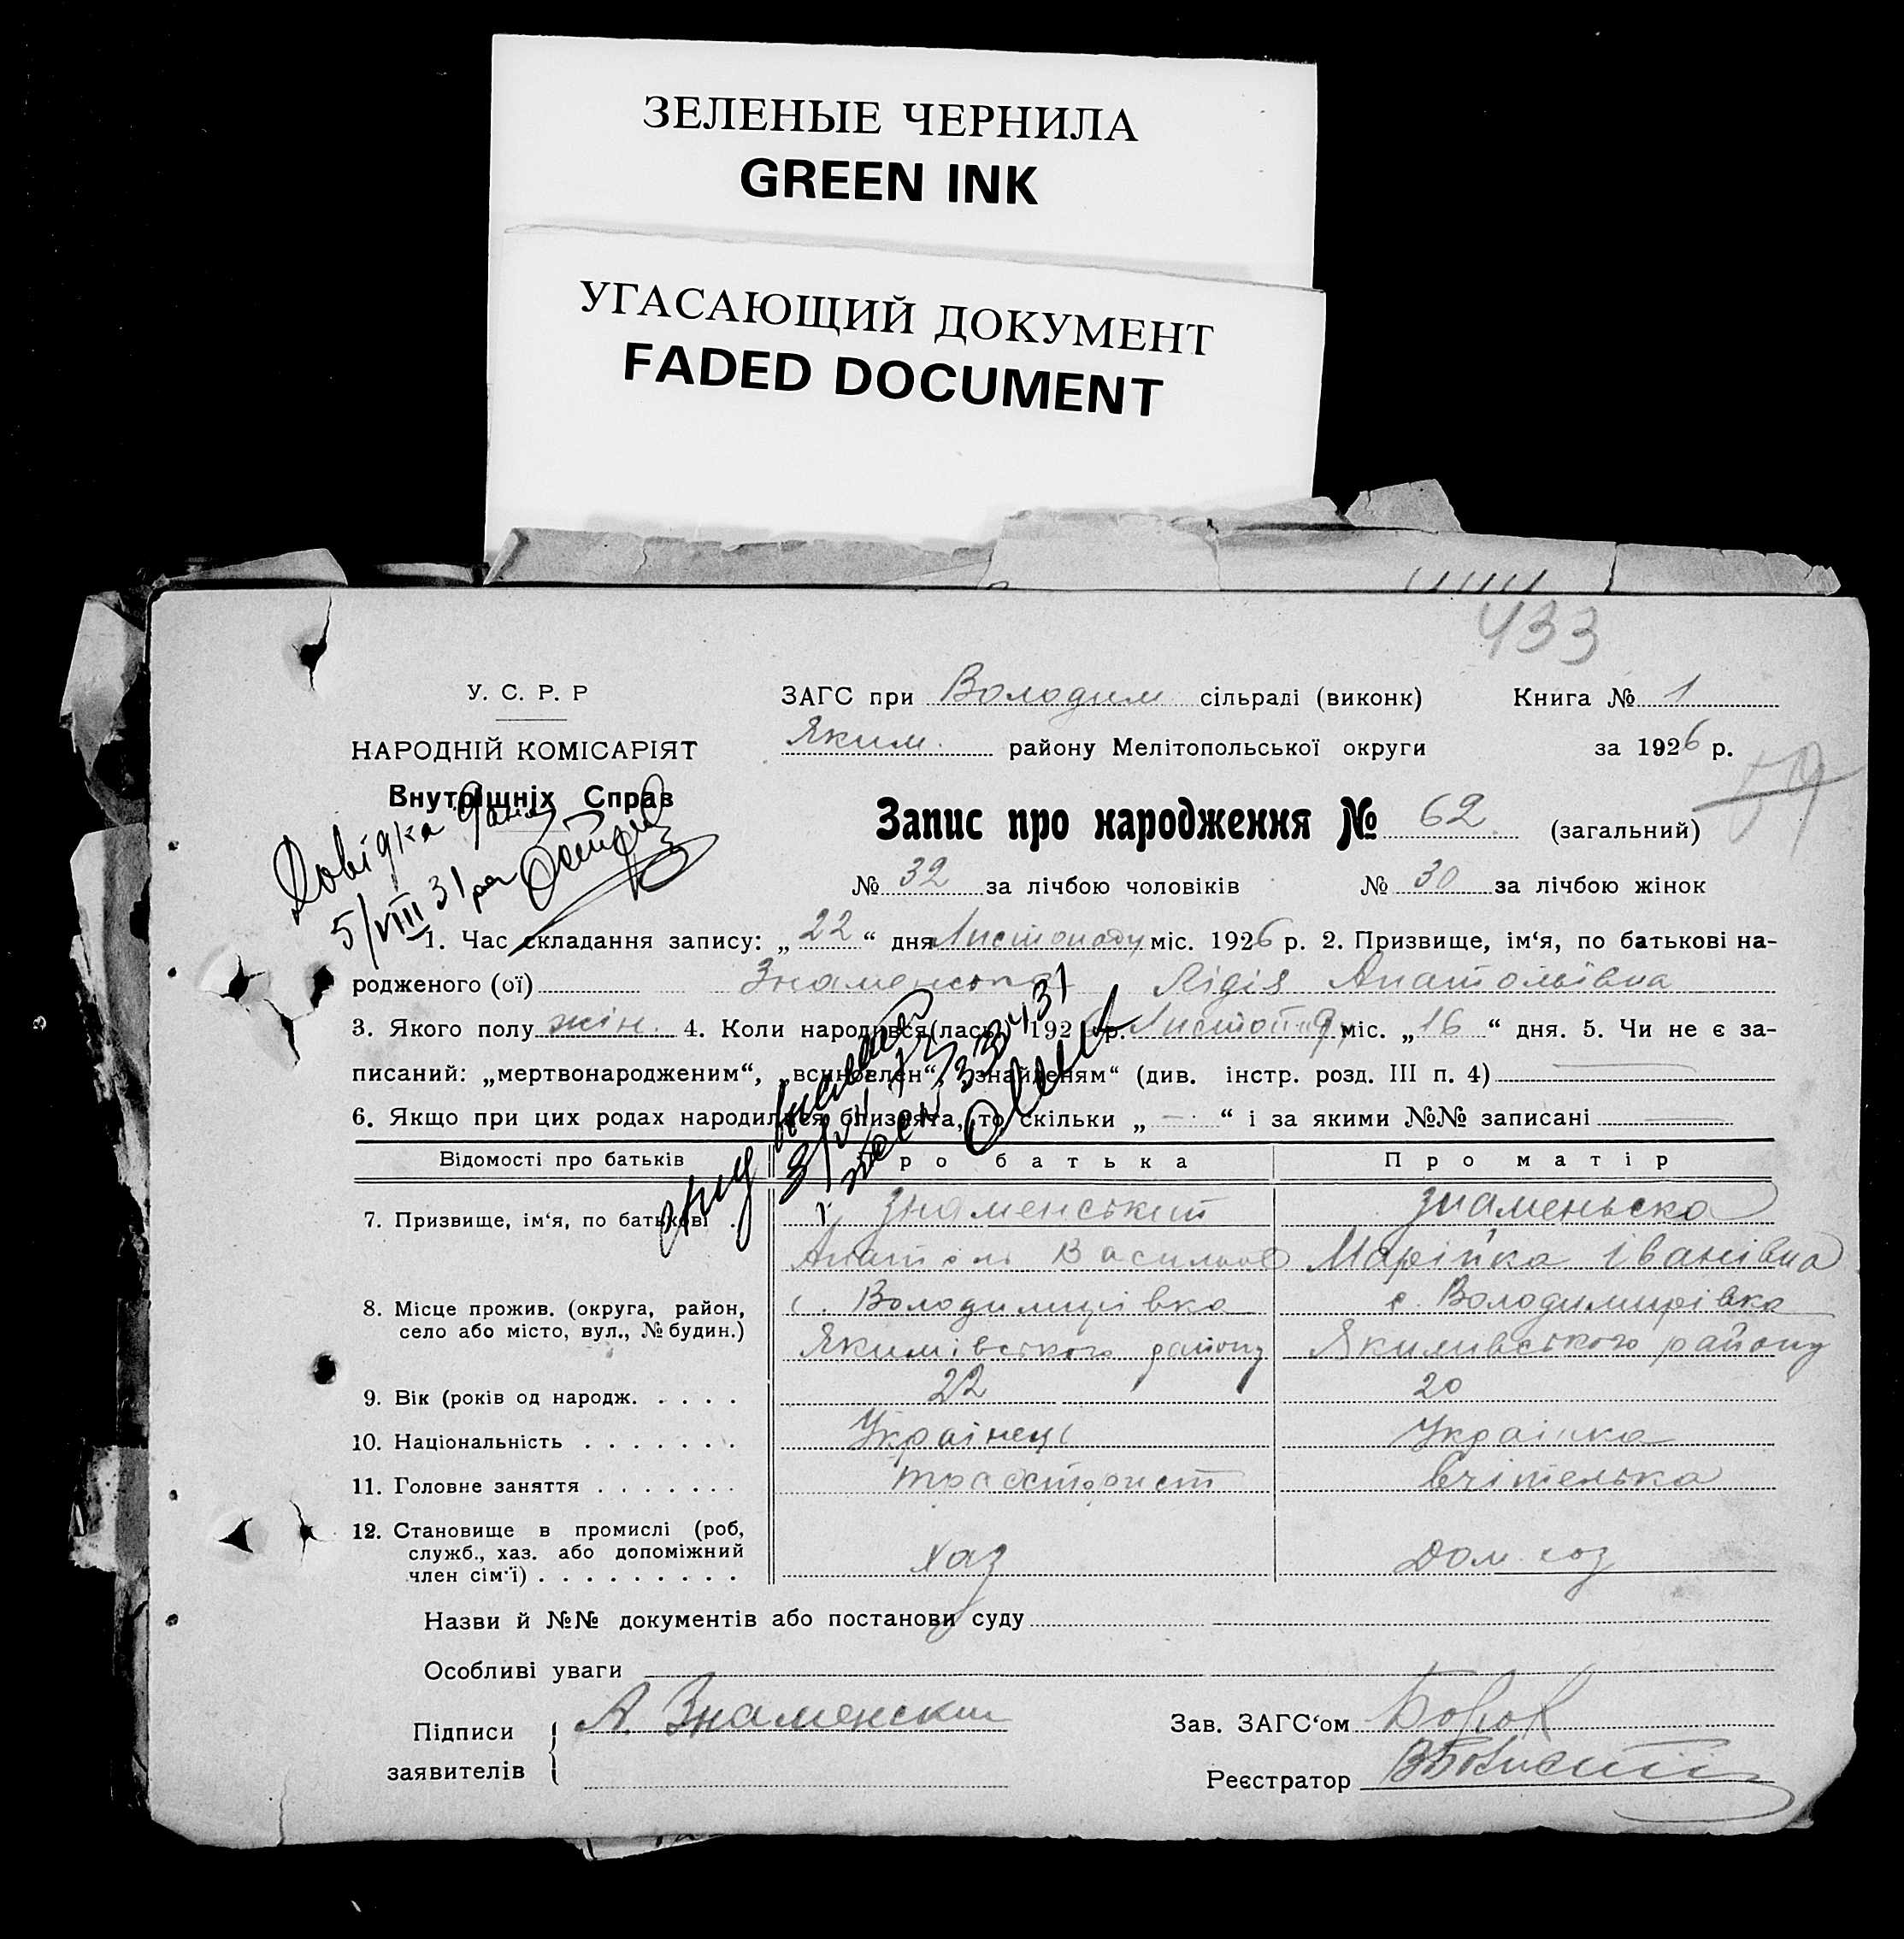 ЗЕЛЕНЫЕ ЧЕРНИЛА
GREEN INK
УГАСАЮЩИЙ ДОКУМЕНТ
FADED DOCUMENT
433
У. С. Р. Р
ЗАГС при Володим сільраді (виконк) Книга № 1
НАРОДНІЙ КОМІСАРІЯТ
Яким. району Мелітопольської округи за 1926 р.
Внутрішніх Справ
59
Запис про народження № 62 (загальний)
Довідка дана
5/VIII 31 р
№ 32 за лічбою чоловіків № 30 за лічбою жінок
1. Час складання запису: „22“ дня Листопаду міс. 1926 р. 2. Призвище, ім‘я, по батькові на-
родженого (ої) Знаменська Лідія Анатольівна
3. Якого полу жін. 4. Коли народився(лась) 1926 р. Листопад міс. „16“ дня. 5. Чи не є за-
писаний: „мертвонародженим“, „всиновлен“, „знайденям“ (див. інстр. розд. III п. 4)
6. Якщо при цих родах народилися близнята, то скільки „—“ і за якими №№ записані
Відомості про батьків Про батька Про матір
7. Призвище, ім‘я, по батькові . Знаменський Знаменьска
Анатоль Васильов Марійка Іванівна
8. Місце прожив. (округа, район, с. Володимирівка с. Володимирівка
село або місто, вул., № будин.) Якимівського району Якимивського району
9. Вік (років од народж. . . . . 22 20
10. Національність . . . . . . . Украінець Украінка
11. Головне заняття . . . . . . . вчітелька
12. Становище в промислі (роб,
служб., хаз. або допоміжний хаз Дом хоз
член сім‘ї) . . . . . . . . .
Назви й №№ документів або постанови суду
Особливі уваги
Підписи А. Знаменский Зав. ЗАГС‘ом
заявителів
Реєстратор